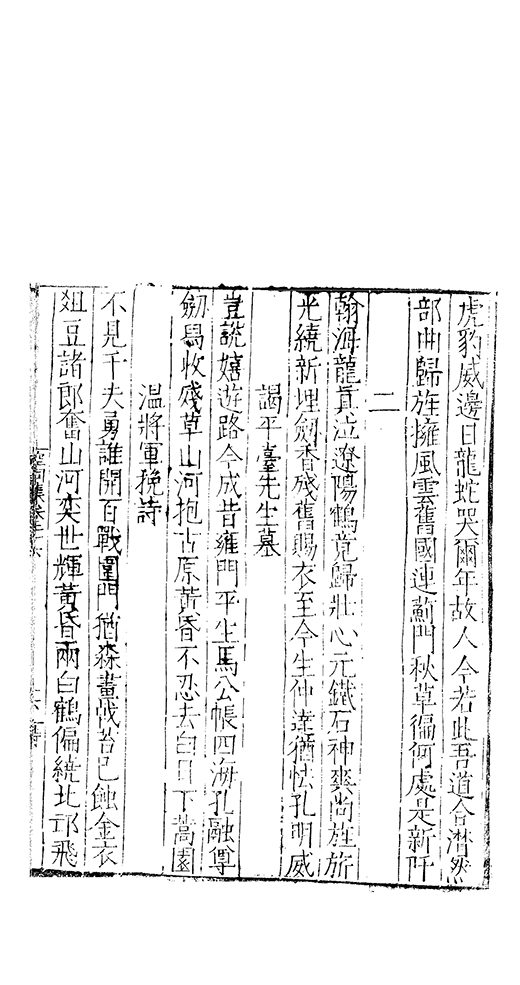 虎豹威邊日龍蛇哭爾年故人今若此吾道合潸然
部曲歸旌擁風雲舊國連薊門秋草徧何處是新阡
二
翰海龍真泣遼陽鶴竟歸壯心元鐵石神爽尚旌旂
光繞新埋劍香殘舊賜衣至今生仲達猶怯孔明威
謁平臺先生墓
豈謂嬉遊路今成昔雍門平生馬公帳四海孔融尊
劒舄收殘草山河抱古原黃昏不忍去白日下蒿園
溫將軍挽詩
不見千夫勇誰開百戰圍門猶森畫戟苔已蝕金衣
俎豆諸郎奮山河奕世輝黃昏兩白鶴偏繞北邙飛
空同集卷三十六